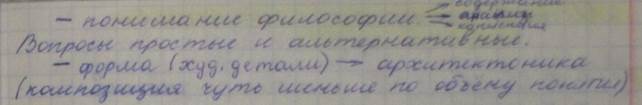 содержание
– понимание философии
Вопросы простые и альтернативные.
– форма (худ. детали) → архитектоника
(композиция чуть меньше по объёму понятия)